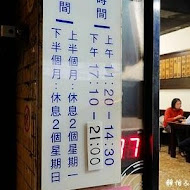 時間
上午11:20-14:30
下午17:10-21:00
間
上半個月:休息2個星期一
下半個月:休息2個星期日